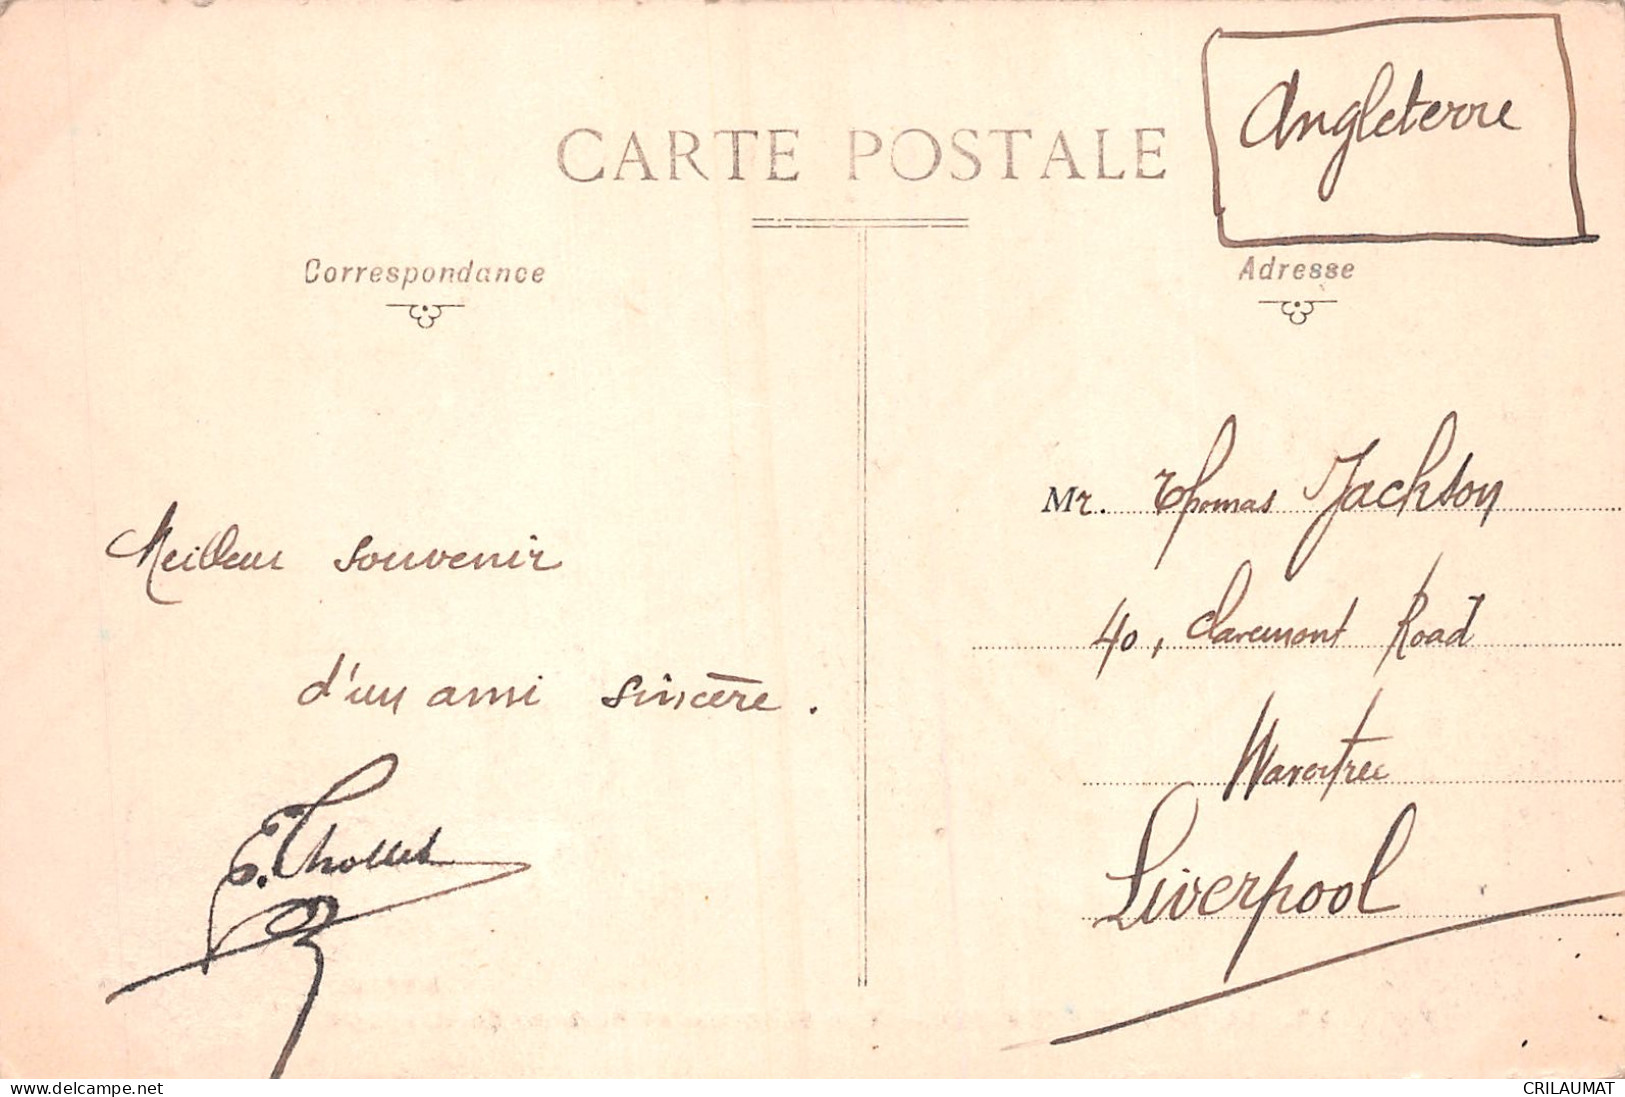 Angleterre
CARTE POSTALE
Correspondance
Adresse
Meilleur souvenir
d'un ami sincère.
E. Thollet
Mr. Thomas Jackson
40, Claremont Road
Wavertree
Liverpool
www.delcampe.net
CRILAUMAT